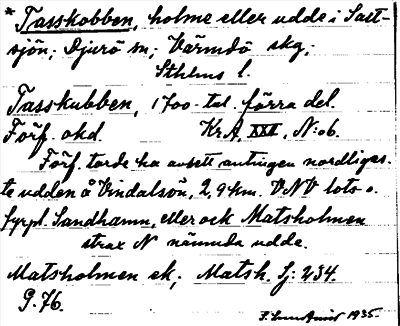 * Tasskobben, holme eller udde i Salt-
sjön; Djurö sn; Värmdö skg;
Sthlms l.
Tasskubben, 1700-tal. förra del.
Förf. okd Kr.A. XXI, N:o 6.
Förf. torde ha avsett antingen nordligas-
te udden å Vindalsön, 2,9 km. VNV lots o.
fyrpl. Sandhamn, eller ock Matsholmen
strax N nämnda udde.
Matsholmen ek; Matsh. J: 234.
G. 76.
1935.